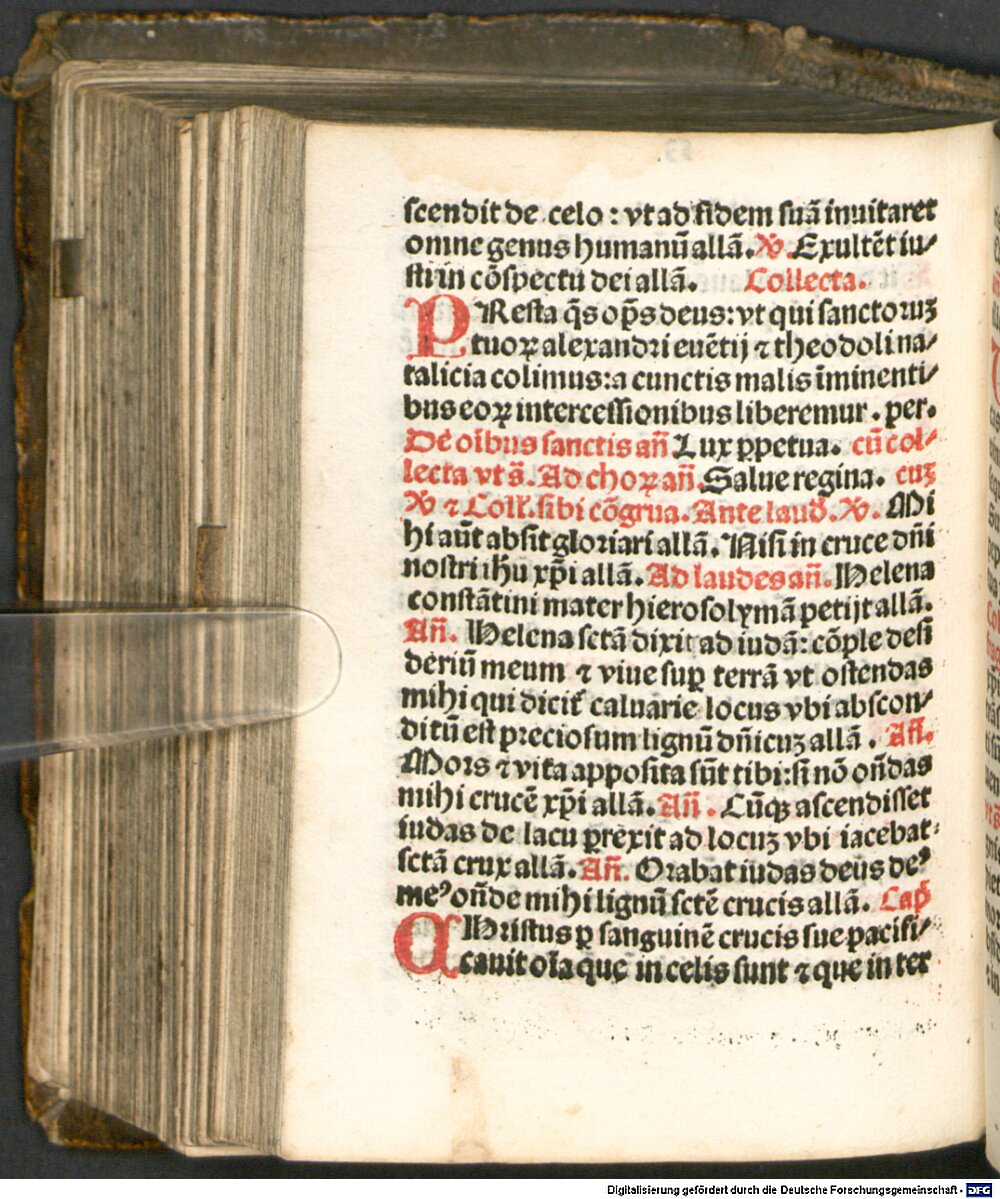 scendit de celo : vt ad fidem suā inuitaret
omne genus humanū allā. ℣. Exultēt iu⸗
sti in cōspectu dei allā. Collecta.
PResta q̄s op̄s deus: vt qui sanctoruꝫ
tuoꝝ alexandri euētij ⁊ theodoli na⸗
talicia colimus: a cunctis malis īminenti⸗
bus eoꝝ intercessionibus liberemur. per.
De oībus sanctis añ Lux ꝑpetua. cū col⸗
lecta vt s̄. Ad choꝝ añ. Salue regina. cuꝫ
℣ ⁊ Coll̄. sibi cōgrua. Ante laud̄. ℣. Mi
hi aūt absit gloriari allā. Nisi in cruce dñi
nostri ihū xp̄i allā. Ad laudes añ. Helena
constātini mater hierosolymā petijt allā.
Añ. Helena sctā dixit ad iudā: cōple desi
deriū meum ⁊ viue suꝑ terrā vt ostendas
mihi qui dicit᷑ caluarie locus vbi abscon⸗
ditū est preciosum lignū dñicuꝫ allā. Añ.
Mors ⁊ vita apposita sūt tibi: si nō oñdas
mihi crucē xp̄i allā. Añ. Cūqꝫ ascendisset
iudas de lacu ꝑrexit ad locuꝫ vbi iacebat
sctā crux allā. Añ. Orabat iudas deus deꝰ
meꝰ oñde mihi lignū sctē crucis allā. Cap̄
CHristus ꝑ sanguinē crucis sue pacifi⸗
cauit oīa que in celis sunt ⁊ que in ter
Digitalisierung gefördert durch die Deutsche Forschungsgemeinschaft - DFG